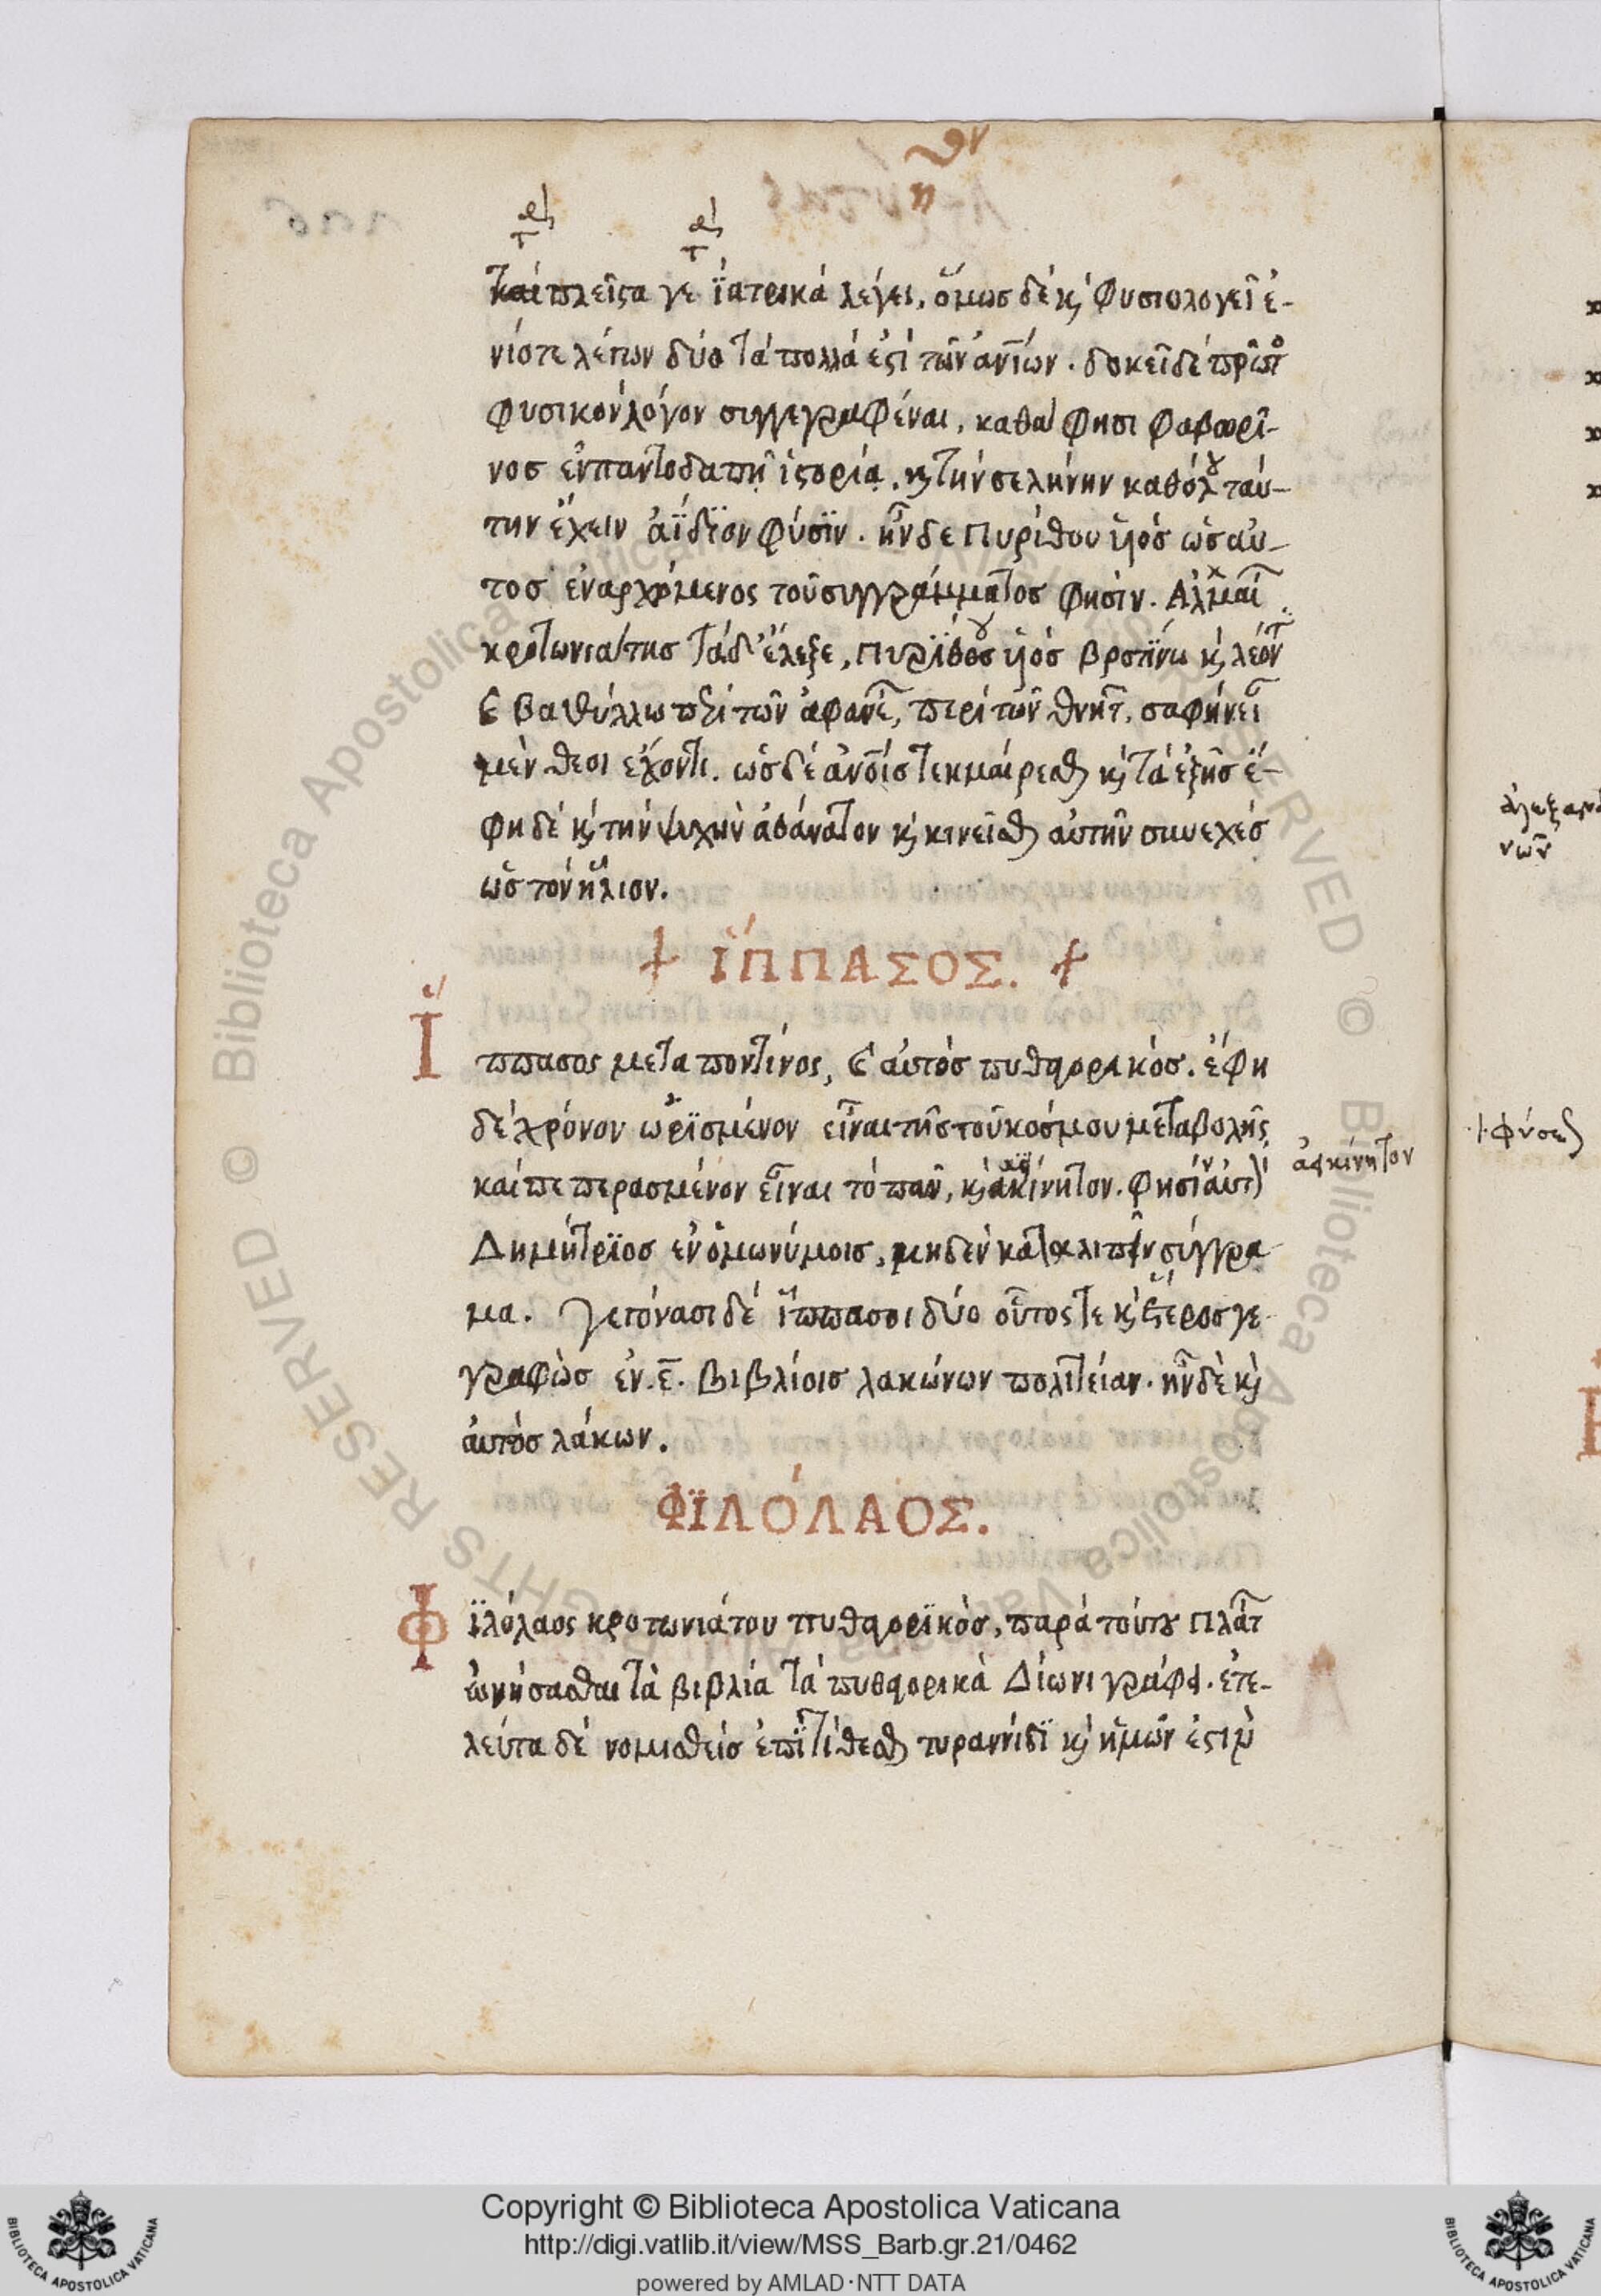 καὶ πλεῖστα γε ϊατρικά λέγει, ὅμως δέ κ(αὶ) φυσιολογεῖ ἐ-
νίοτε λέγων δύο τὰ πολλά ἐστί τῶν ἀν(θρωπ)ίων. δοκεῖ δέ πρῶτο
φυσικόν λόγον συγγεγραφέναι, καθά φησι φαβωρῖ-
νος ἐν παντοδαπῇ ἱστορίᾳ. κ(αὶ) τήν σελήνην καθόλου ταύ-
την ἔχειν ἀΐδϊον φύσϊν. ἦν δε Πυρίθου υἱός ὡς αυ-
τοσ ἐναρχόμενος τοῦ συγγράμματος φησίν. Αλκμαί
κροτωνιάτης τάδ' ἔλεξε, πυρίθου υἱός βροτίνω κ(αὶ) λέοντ
ϛ βαθύλλω περί τῶν ἀφανέ, περί τῶν θνητ, σαφήνει
μὲν θεοι ἔχοντι. ὡς δέ ἀν(θρώπ)οις τεκμαίρεσθ κ(αὶ) τά ἑξῆς ἔ-
φη δέ κ(αὶ) τήν ψυχὴν ἀθάνατον κ(αὶ) κινεῖσθ αὐτὴν συνεχές
ὡς τόν ἥλιον.
ἽΠΠΑΣΟΣ.
Ἵ
ππασος μεταποντίνος, ϛ αὐτός πυθαγορικός. ἔφη
δέ χρόνον ὡρϊσμένον εἶναι τῆς τοῦ κόσμου μεταβολῆς
καί πεπερασμένον εἶναι τό πᾶν, κ(αὶ) ἀκίνητον. φησίν αὐτ
ἀεικίνητον
Δημήτρϊος ἐν ὁμωνύμοις, μηδέν καταλιπεῖν σύγγρα
μα. γεγόνασι δέ ἵππασοι δύο οὗτος τε κ(αὶ) ἕτερος γε
γραφὼς ἐν. ε̅. βιβλίοις λακώνων πολιτείαν. ἦν δὲ κ(αὶ)
αὐτὸς λάκων.
ΦΪΛΌΛΑΟΣ.
Φ
ϊλόλαος κροτωνιάτου πυθαγορϊκός, παρά τούτου Πλάτ
ὠνήσασθαι τὰ βιβλία τά πυθαγορικὰ Δίωνι γράφει. ἐτε-
λεύτα δέ νομισθείς ἐπϊτίθεσθ τυραννίδϊ κ(αὶ) ἡμῶν ἐστιν
Copyright © Biblioteca Apostolica Vaticana
http://digi.vatlib.it/view/MSS_Barb.gr.21/0462
powered by AMLAD·NTT DATA